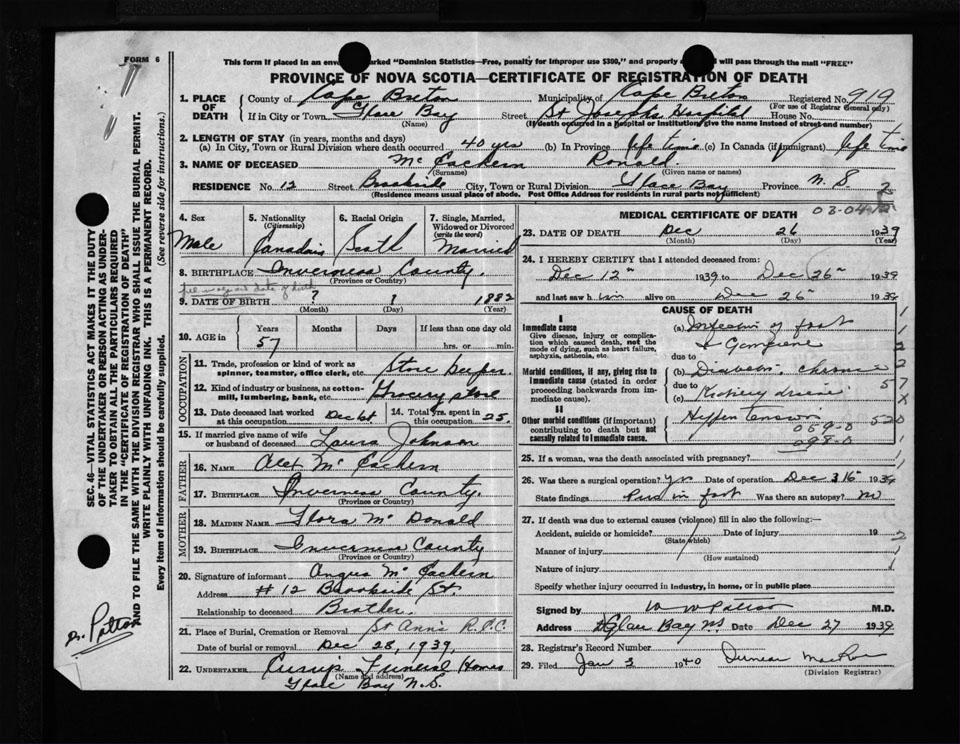 FORM 6
This form if placed in an env marked "Dominion Statistics—Free, penalty for improper use $300," and properly will pass through the mail "FREE"
PROVINCE OF NOVA SCOTIA—CERTIFICATE OF REGISTRATION OF DEATH
1. PLACE OF DEATH County of Cape Breton Municipality of Cape Breton Registered No. 919
(For use of Registrar General only)
If in City or Town Glace Bay Street St Joseph's Hospital House No.
(Name) (If death occurred in a hospital or institution, give the name instead of street and number)
2. LENGTH OF STAY (in years, months and days)
(a) In City, Town or Rural Division where death occurred 40 yrs (b) In Province life time (c) In Canada (if immigrant) life time
3. NAME OF DECEASED McEachern Ronald
(Surname) (Given name or names)
RESIDENCE No. 12 Street Brookside City, Town or Rural Division Glace Bay Province N.S
(Residence means usual place of abode. Post Office Address for residents in rural parts not sufficient)
4. Sex
Male
5. Nationality
(Citizenship)
Canadian
6. Racial Origin
Scotch
7. Single, Married, Widowed or Divorced
(write the word)
Married
8. BIRTHPLACE Inverness County.
(Province or County)
9. DATE OF BIRTH ? 1 1882
(Month) (Day) (Year)
10. AGE in Years Months Days If less than one day old
57 hrs. or min.
OCCUPATION
11. Trade, profession or kind of work as spinner, teamster, office clerk, etc. Store keeper.
12. Kind of industry or business, as cotton-mill, lumbering, bank, etc. Grocery store
13. Date deceased last worked at this occupation Dec 1st 14. Total yrs. spent in this occupation 25.
15. If married give name of wife or husband of deceased Laura Johnson
FATHER
16. NAME Alex McEachern
17. BIRTHPLACE Inverness County.
(Province or County)
MOTHER
18. MAIDEN NAME Flora McDonald
19. BIRTHPLACE Inverness County
(Province or County)
20. Signature of informant Angus McEachern
Address #12 Brookside St.
Relationship to deceased Brother.
21. Place of Burial, Cremation or Removal St Ann's R.C.C.
Date of burial or removal Dec 28, 1939,
22. UNDERTAKER Funeral Home
(Name and address)
Glace Bay N.S.
MEDICAL CERTIFICATE OF DEATH
03-04
23. DATE OF DEATH Dec 26 1939
(Month) (Day) (Year)
24. I HEREBY CERTIFY that I attended deceased from:
Dec 12th 1939 to Dec 26th 1939
and last saw him alive on Dec 26th 1939
CAUSE OF DEATH
I
Immediate cause
Give disease, injury or complication which caused death, not the mode of dying, such as heart failure, asphyxia, asthenia, etc.
(a) Infection of foot
+ Gangrene
due to
Morbid conditions, if any, giving rise to immediate cause (stated in order proceeding backwards from immediate cause)
(b) Diabetes. Chronic
due to
(c) Kidney disease
II
Other morbid conditions (if important) contributing to death but not causally related to immediate cause.
Hypertension
059-0
098-0
25. If a woman, was the death associated with pregnancy?
26. Was there a surgical operation? yes Date of operation Dec 16 1939
State findings Pus in foot Was there an autopsy? no
27. If death was due to external causes (violence) fill in also the following:—
Accident, suicide or homicide? Date of injury 19
(State which)
Manner of injury
(How sustained)
Nature of injury
Specify whether injury occurred in industry, in home, or in public place
Signed by M.D.
Address Glace Bay NS Date Dec 27 1939
28. Registrar's Record Number
29. Filed Jan 2 1940 Duncan
(Division Registrar)
SEC. 46—VITAL STATISTICS ACT MAKES IT THE DUTY OF THE UNDERTAKER OR PERSON ACTING AS UNDERTAKER TO OBTAIN ALL THE PARTICULARS REQUIRED IN THE "CERTIFICATE OF REGISTRATION OF DEATH" AND TO FILE THE SAME WITH THE DIVISION REGISTRAR WHO SHALL ISSUE THE BURIAL PERMIT.
(See reverse side for instructions.)
WRITE PLAINLY WITH UNFADING INK. THIS IS A PERMANENT RECORD.
Every item of information should be carefully supplied.